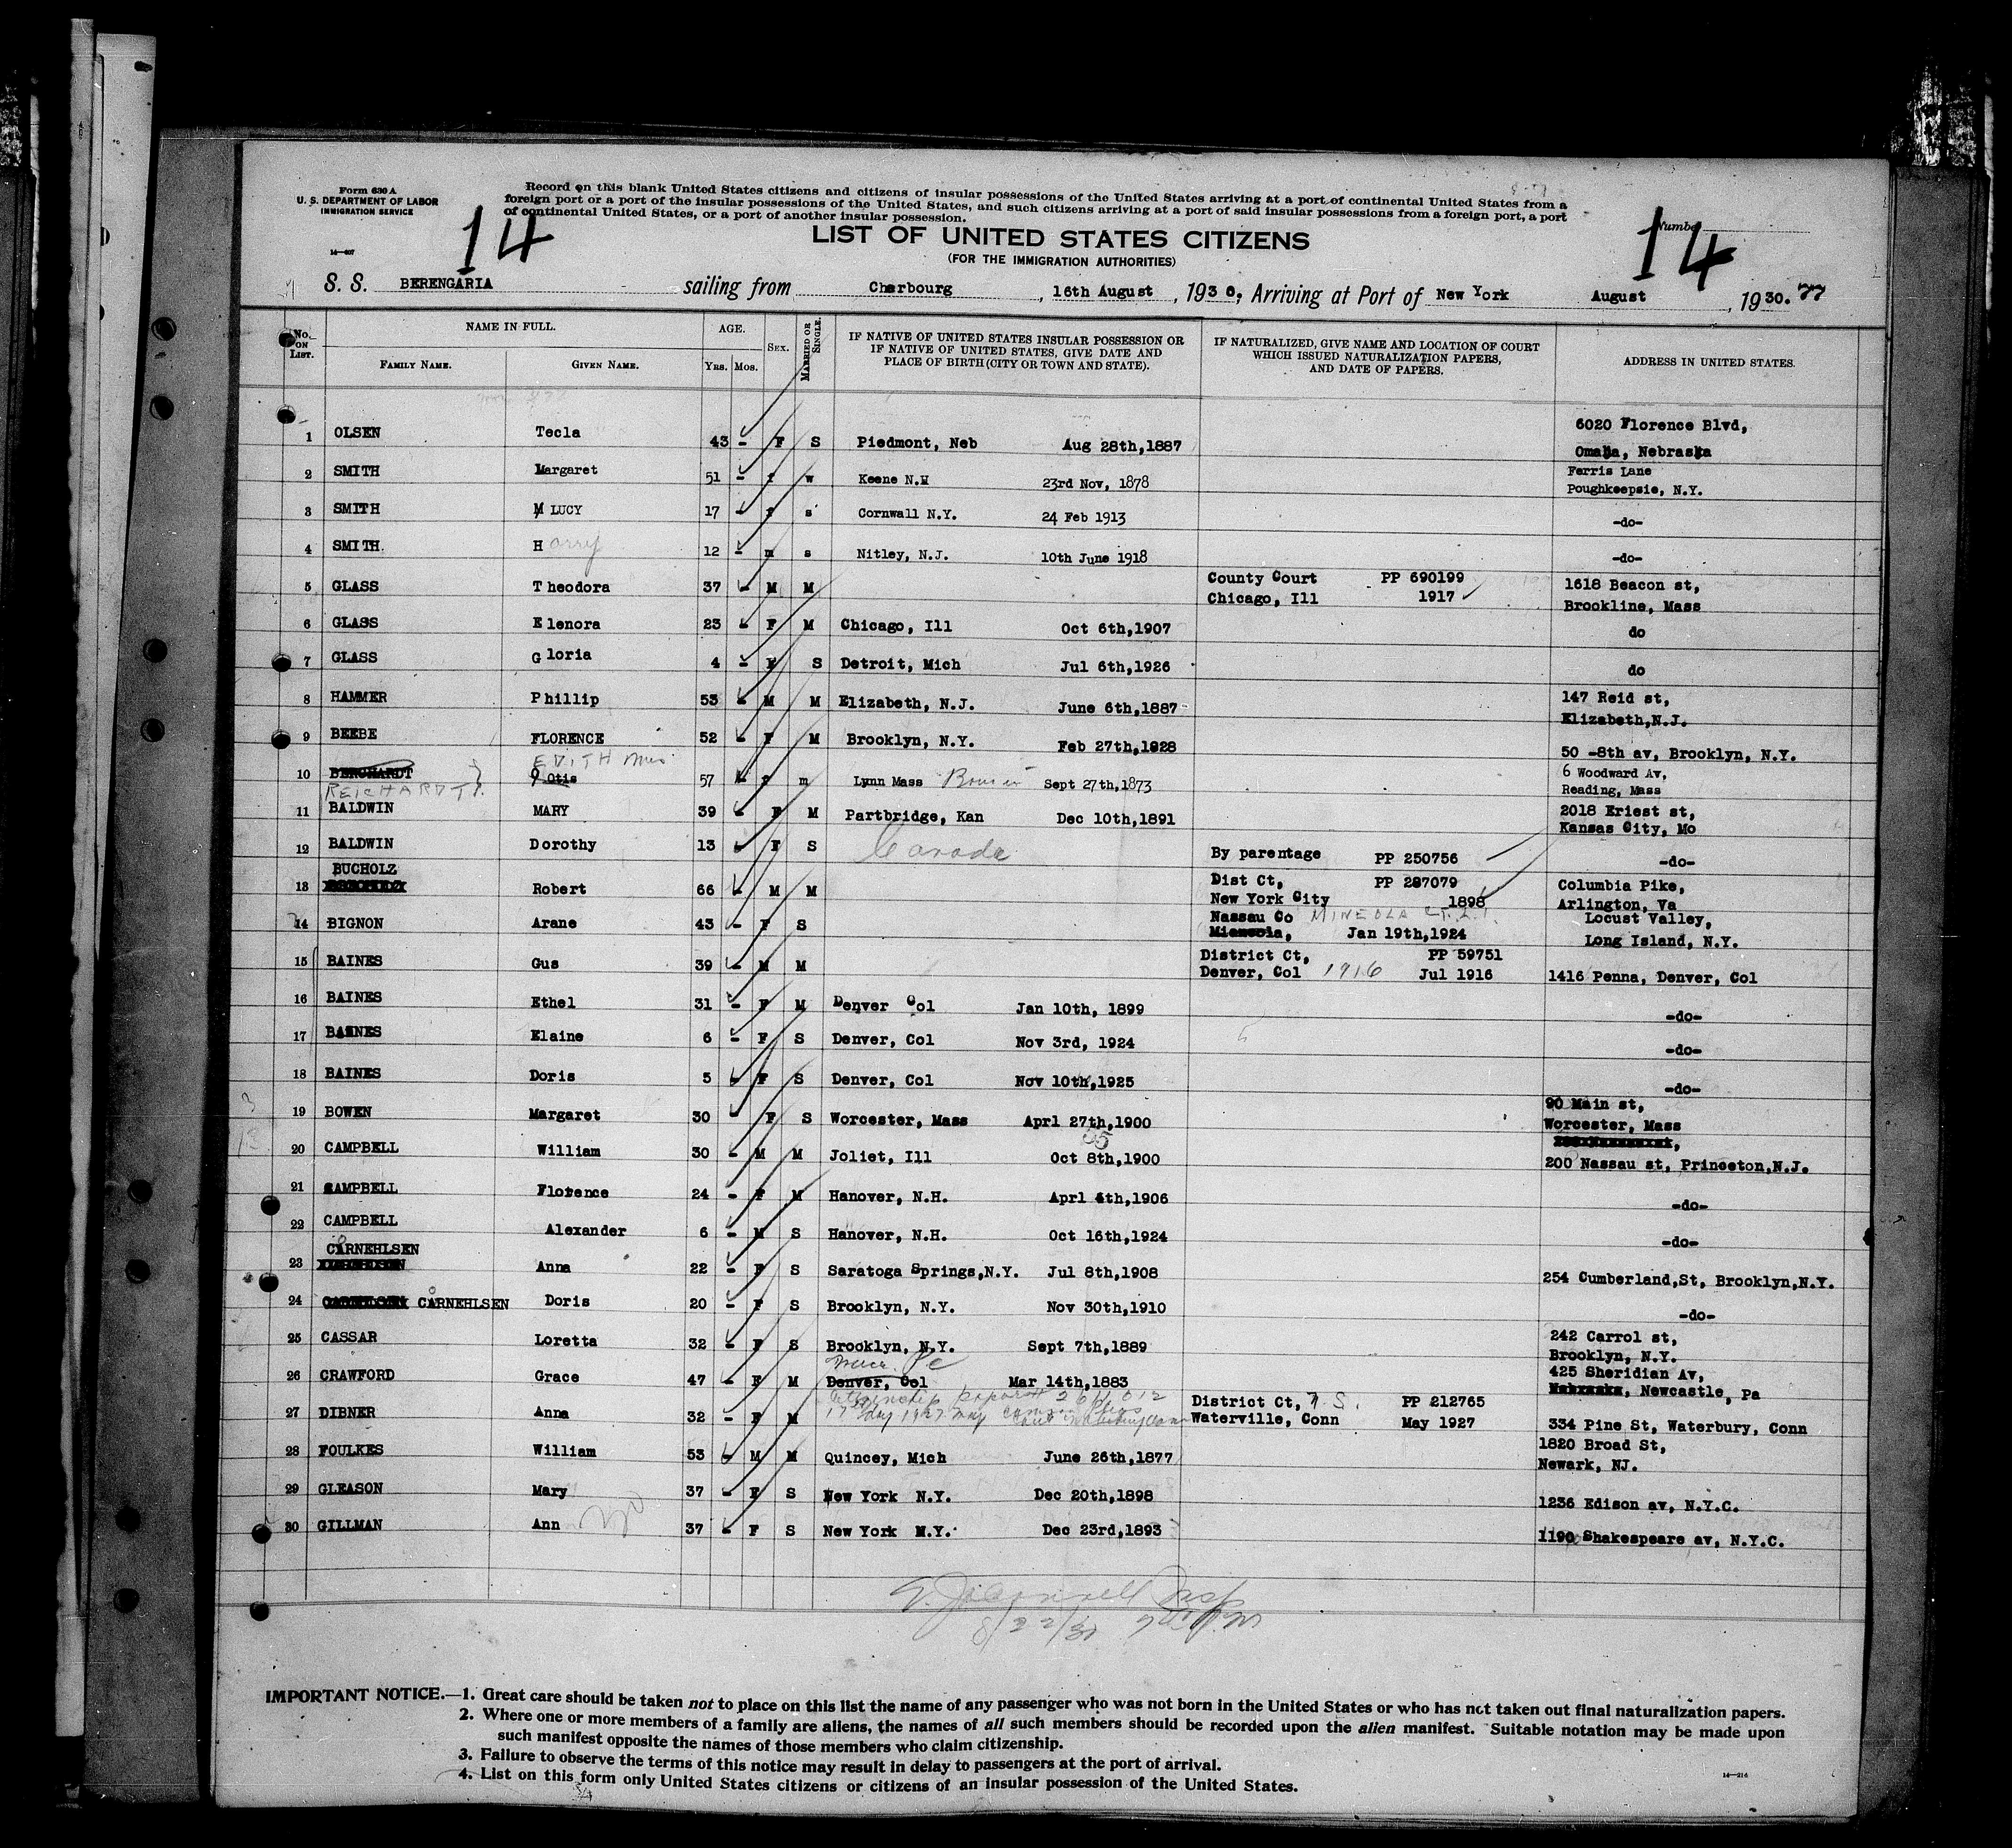 Form 630 A
U. S. DEPARTMENT OF LABOR
IMMIGRATION SERVICE
14—407
Record on this blank United States citizens and citizens of insular possessions of the United States arriving at a port of continental United States from a
foreign port or a port of the insular possessions of the United States, and such citizens arriving at a port of said insular possessions from a foreign port, a port
of continental United States, or a port of another insular possession.
14
Number
14
LIST OF UNITED STATES CITIZENS
(FOR THE IMMIGRATION AUTHORITIES)
S. S. BERENGARIA sailing from Cherbourg, 16th August, 1930, Arriving at Port of New York August, 1930. 77
No. ON LIST. NAME IN FULL. AGE. SEX. MARRIED OR SINGLE. IF NATIVE OF UNITED STATES INSULAR POSSESSION OR IF NATIVE OF UNITED STATES, GIVE DATE AND PLACE OF BIRTH (CITY OR TOWN AND STATE). IF NATURALIZED, GIVE NAME AND LOCATION OF COURT WHICH ISSUED NATURALIZATION PAPERS, AND DATE OF PAPERS. ADDRESS IN UNITED STATES.
FAMILY NAME. GIVEN NAME. YRS. MOS.
1 OLSEN Tecla 43 - F S Piedmont, Neb Aug 28th,1887 6020 Florence Blvd,
Omaha, Nebraska
2 SMITH Margaret 51 - f w Keene N.H 23rd Nov, 1878 Ferris Lane
Poughkeepsie, N.Y.
3 SMITH M LUCY 17 - f s Cornwall N.Y. 24 Feb 1913 -do-
4 SMITH. Harry 12 - m s Nitley, N.J. 10th June 1918 -do-
5 GLASS Theodora 37 - M M County Court PP 690199 1618 Beacon st,
Chicago, Ill 1917 Brookline, Mass
6 GLASS Elenora 23 - F M Chicago, Ill Oct 6th,1907 do
7 GLASS Gloria 4 - F S Detroit, Mich Jul 6th,1926 do
8 HAMMER Phillip 53 - M M Elizabeth, N.J. June 6th,1887 147 Reid st,
Elizabeth,N.J.
9 BEEBE FLORENCE 52 - F M Brooklyn, N.Y. Feb 27th,1928 50 -8th av, Brooklyn, N.Y.
EDITH Mrs
10 BERCHARDT Otis 57 - f m Lynn Mass Sept 27th,1873 6 Woodward Av,
REICHARDT Reading, Mass
11 BALDWIN MARY 39 - F M Partbridge, Kan Dec 10th,1891 2018 Eriest st,
Kansas City, Mo
12 BALDWIN Dorothy 13 - F S Canada By parentage PP 250756 -do-
BUCHOLZ
13 Robert 66 - M M Dist Ct, PP 287079 Columbia Pike,
New York City 1898 Arlington, Va
14 BIGNON Arane 43 - F S Nassau Co MINEOLA Locust Valley,
Jan 19th,1924 Long Island, N.Y.
15 BAINES Gus 39 - M M District Ct, PP 59751
Denver, Col 1916 Jul 1916 1416 Penna, Denver, Col
16 BAINES Ethel 31 - F M Denver Col Jan 10th, 1899 -do-
17 BAINES Elaine 6 - F S Denver, Col Nov 3rd, 1924 -do-
18 BAINES Doris 5 - F S Denver, Col Nov 10th,1925 -do-
19 BOWEN Margaret 30 - F S Worcester, Mass Aprl 27th,1900 90 Main st,
Worcester, Mass
20 CAMPBELL William 30 - M M Joliet, Ill Oct 8th,1900 200 Nassau st, Princeton,N.J.
21 CAMPBELL Florence 24 - F M Hanover, N.H. Aprl 4th,1906 -do-
22 CAMPBELL Alexander 6 - M S Hanover, N.H. Oct 16th,1924 -do-
CARNEHLSEN
23 Anna 22 - F S Saratoga Springs,N.Y. Jul 8th,1908 254 Cumberland,St, Brooklyn,N.Y.
24 CARNEHLSEN Doris 20 - F S Brooklyn, N.Y. Nov 30th,1910 -do-
25 CASSAR Loretta 32 - F S Brooklyn, N.Y. Sept 7th,1889 242 Carrol st,
Brooklyn, N.Y.
26 CRAWFORD Grace 47 - F M Denver, Col Mar 14th,1883 425 Sheridian Av,
Newcastle, Pa
27 DIBNER Anna 32 - F M District Ct, PP 212765
Waterville, Conn May 1927 334 Pine St, Waterbury, Conn
28 FOULKES William 53 - M M Quincey, Mich June 26th,1877 1820 Broad St,
Newark, NJ.
29 GLEASON Mary 37 - F S New York N.Y. Dec 20th,1898 1236 Edison av, N.Y.C.
30 GILLMAN Ann 37 - F S New York N.Y. Dec 23rd,1893 1190 Shakespeare av, N.Y.C.
8/22/30
IMPORTANT NOTICE.—1. Great care should be taken not to place on this list the name of any passenger who was not born in the United States or who has not taken out final naturalization papers.
2. Where one or more members of a family are aliens, the names of all such members should be recorded upon the alien manifest. Suitable notation may be made upon
such manifest opposite the names of those members who claim citizenship.
3. Failure to observe the terms of this notice may result in delay to passengers at the port of arrival.
4. List on this form only United States citizens or citizens of an insular possession of the United States.
14—214